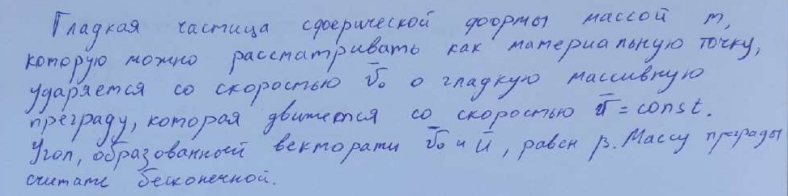 Гладкая частица сферической формы массой m,
которую можно рассматривать как материальную точку,
ударяется со скоростью v̄₀ о гладкую массивную
преграду, которая движется со скоростью ū = const.
Угол, образованный векторами v̄₀ и ū, равен β. Массу преграды
считать бесконечной.